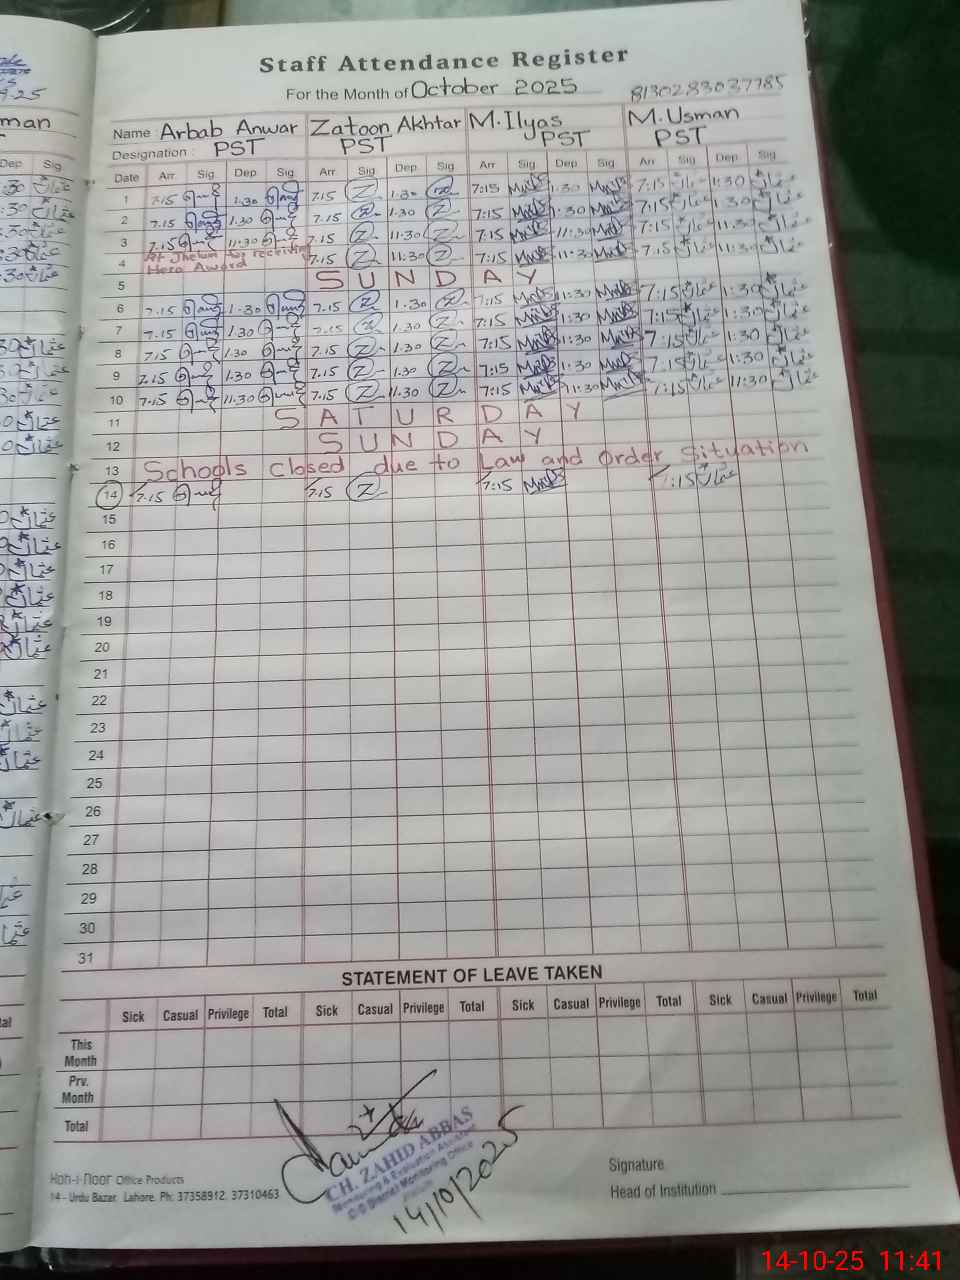 Staff Attendance Register
For the Month of October 2025
8130283037785
Name Arbab Anwar Zatoon Akhtar M. Ilyas M. Usman
Designation : PST PST PST PST
Date Arr. Sig. Dep Sig. Arr Sig Dep Sig Arr Sig Dep Sig Arr Sig Dep Sig
1 7.15 1.30 7.15 1.30 7:15 1:30 7:15 عثمان 1:30 عثمان
2 7.15 1.30 7.15 1.30 7:15 1:30 7:15 عثمان 1:30 عثمان
3 7.15 11:30 7.15 11.30 7:15 11:30 7:15 عثمان 11:30 عثمان
4 At Jhelum for receiving Hero Award 7.15 11:30 7:15 11:30 7:15 عثمان 11:30 عثمان
5 SUNDAY
6 7.15 1.30 7.15 1.30 7:15 1:30 7:15 عثمان 1:30 عثمان
7 7.15 1.30 7.15 1.30 7:15 1:30 7:15 عثمان 1:30 عثمان
8 7.15 1.30 7.15 1.30 7:15 1:30 7:15 عثمان 1:30 عثمان
9 7.15 1.30 7.15 1.30 7:15 1:30 7:15 عثمان 1:30 عثمان
10 7.15 11.30 7.15 11.30 7:15 11:30 7:15 عثمان 11:30 عثمان
11 SATURDAY
12 SUNDAY
13 Schools closed due to Law and Order Situation
14 7.15 7.15 7:15 7:15 عثمان
15
16
17
18
19
20
21
22
23
24
25
26
27
28
29
30
31
STATEMENT OF LEAVE TAKEN
Sick Casual Privilege Total Sick Casual Privilege Total Sick Casual Privilege Total Sick Casual Privilege Total
This Month
Prv. Month
Total
CH. ZAHID ABBAS
Monitoring & Evaluation Assistant
District Monitoring Office
14/10/2025
Koh-i-Noor Office Products
14 - Urdu Bazar, Lahore. Ph: 37358912, 37310463
Signature
Head of Institution
14-10-25 11:41